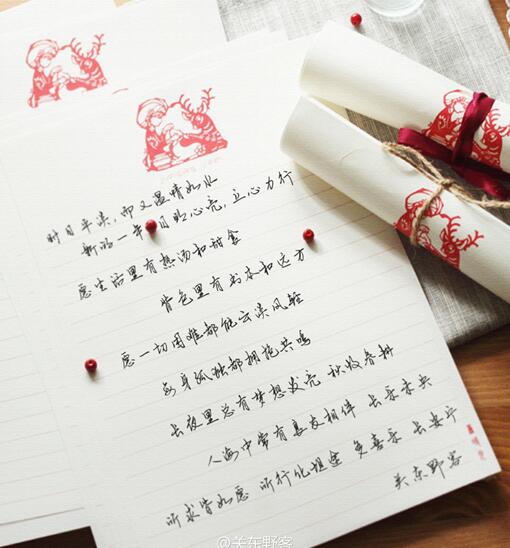 时日平淡，而又温情如水
新的一年 目明心亮，立心力行
愿生活里有热汤和甜食
背包里有书本和远方
愿一切困难都能云淡风轻
每身孤独都拥抱共鸣
长夜里总有梦想发亮 秋收春耕
人海中常有良友相伴 长乐未央
所求皆如愿 所行化坦途 多喜乐 长安宁
关东野客
@关东野客